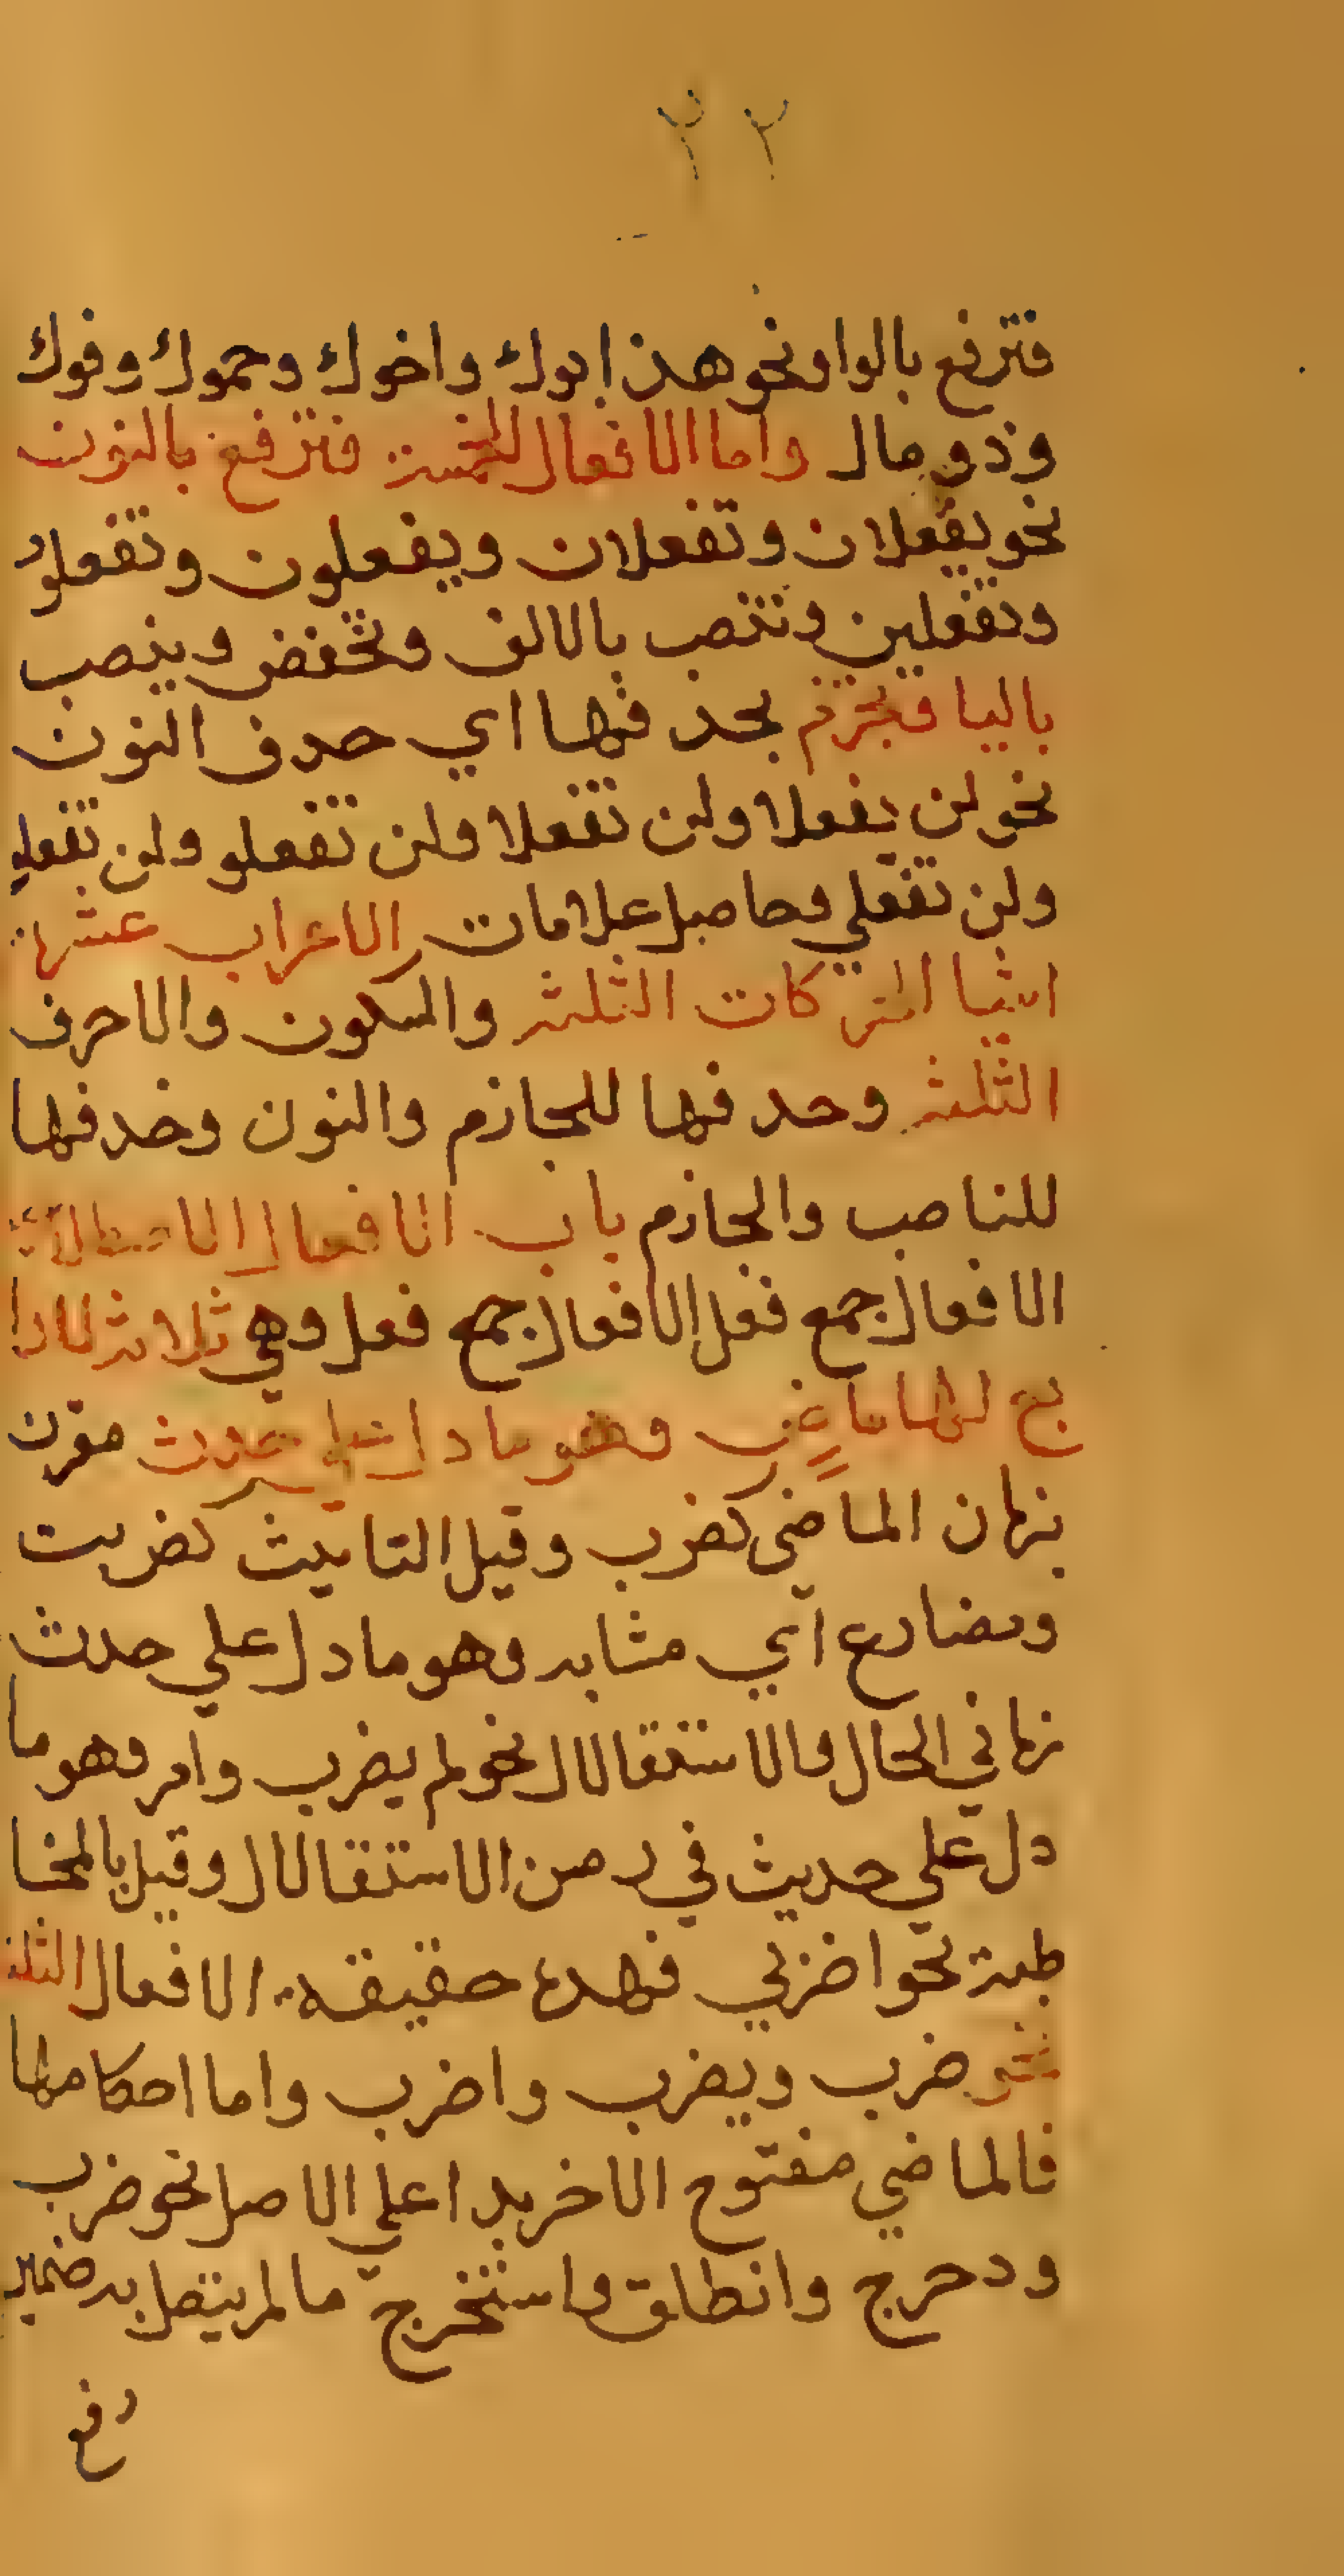 ٢٢
فترفع بالواو نحو هذا ابوك واخوك وحموك وفوك
وذو مال واما الافعال الخمسة فترفع بالنون
نحو يفعلان وتفعلان ويفعلون وتفعلو
وتفعلين وتنصب بالالف وتخفض وينصب
باليا فتجزم بحذفها اي حدف النون
نحو لن يفعلا ولن تفعلا ولن تفعلو ولن تفعلو
ولن تفعلي وحاصل علامات الاعراب عشرة
اشيا الحركات الثلثة والسكون والاحرف
الثلثة وحدفها للجازم والنون وحدفها
للناصب والجازم باب الافعال
الافعال جمع فعل الافعال جمع فعل وهي ثلاثة لا را
بع لها ماض وهو ما دل على حدث مقرن
بزمان الماضي كضرب وقيل التانيث كضربت
ومضارع اي مشابه وهو ما دل علي حدث
زماني الحال والاستقالال نحو لم يضرب وامر وهو ما
دل علي حديث في زمن الاستقالال وقيل بالمخا
طبة نحو اضربي فهده حقيقة الافعال الثلثة
نحو ضرب ويضرب واضرب واما احكامها
فالماضي مفتوح الاخر بدا علي الاصل نحو ضرب
ودحرج وانطلق واستخرج ما لم يتصل به ضمير
رفع